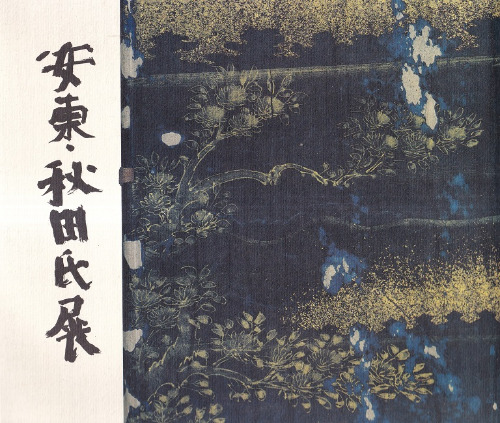 安東・秋田氏展